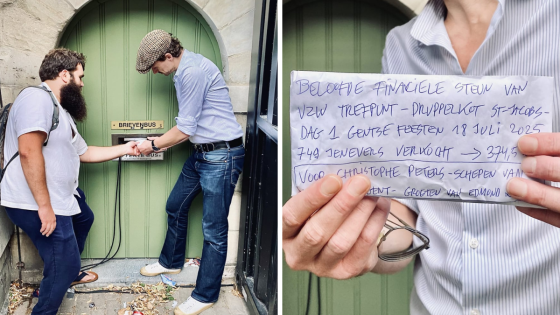 BRIEVENBUS
BELOOFDE FINACIELE STEUN VAN
VZW TREFPUNT - DRUPPELKOT ST-JACOBS-
DAG 1 GENTSE FEESTEN 18 JULI 2025
749 JENEVERS VERKOCHT → 374,5
VOOR CHRISTOPHE PETERS - SCHEPEN VAN
GENT - GROETEN VAN EDMOND